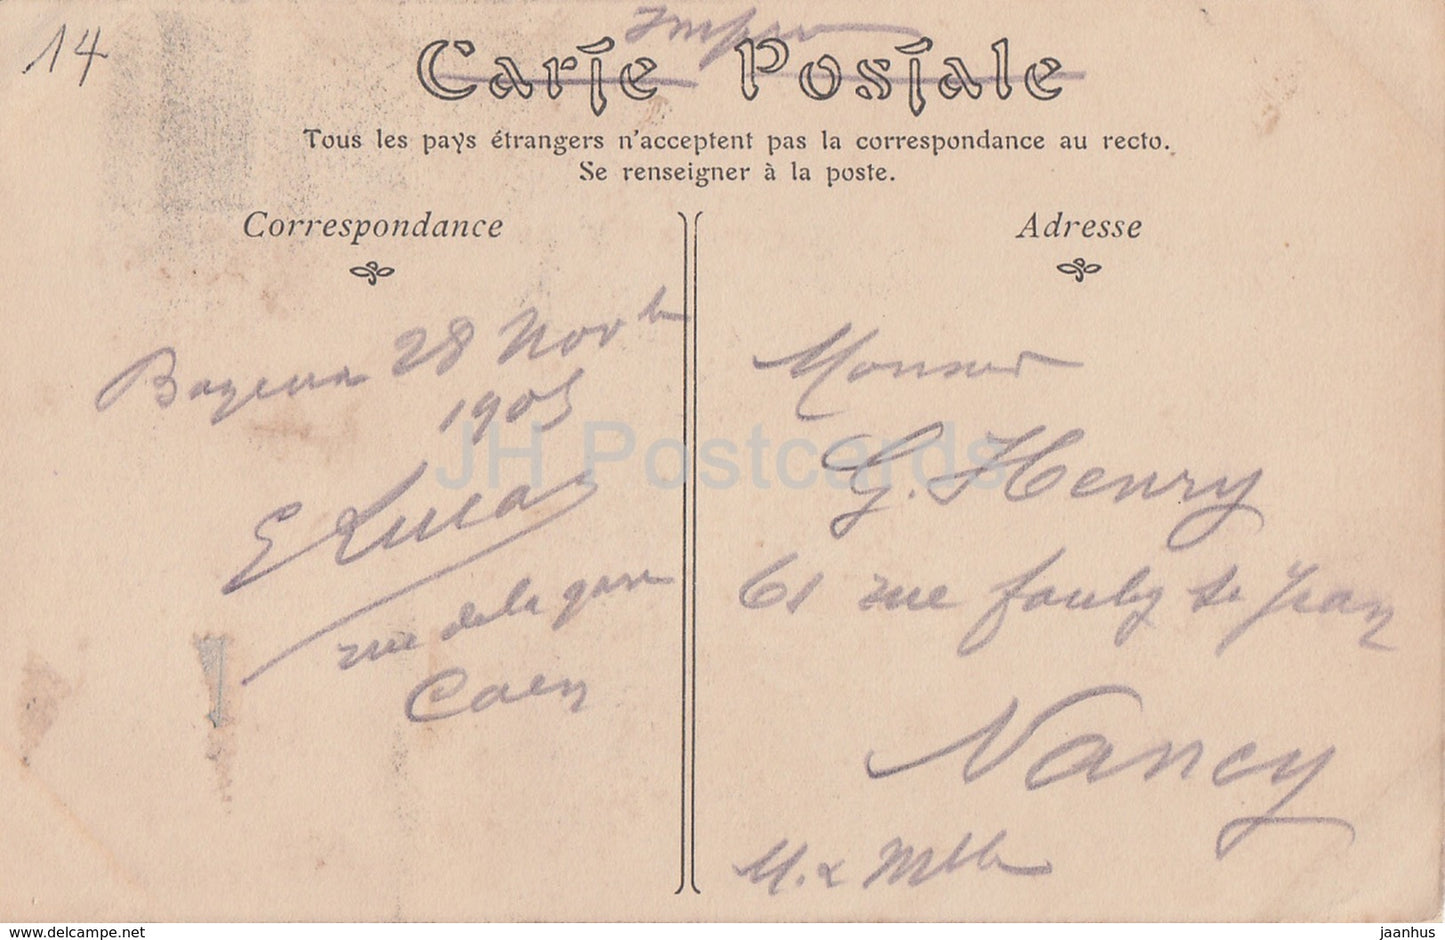 14
Impr
Carte Postale
Tous les pays étrangers n'acceptent pas la correspondance au recto.
Se renseigner à la poste.
Correspondance
28 Novbr
1905
E Lucas
rue de la gare
Caen
Adresse
Monsieur
G. Henry
61 rue faubg St Jean
Nancy
M. & M
JH Postcards
www.delcampe.net
jaanhus